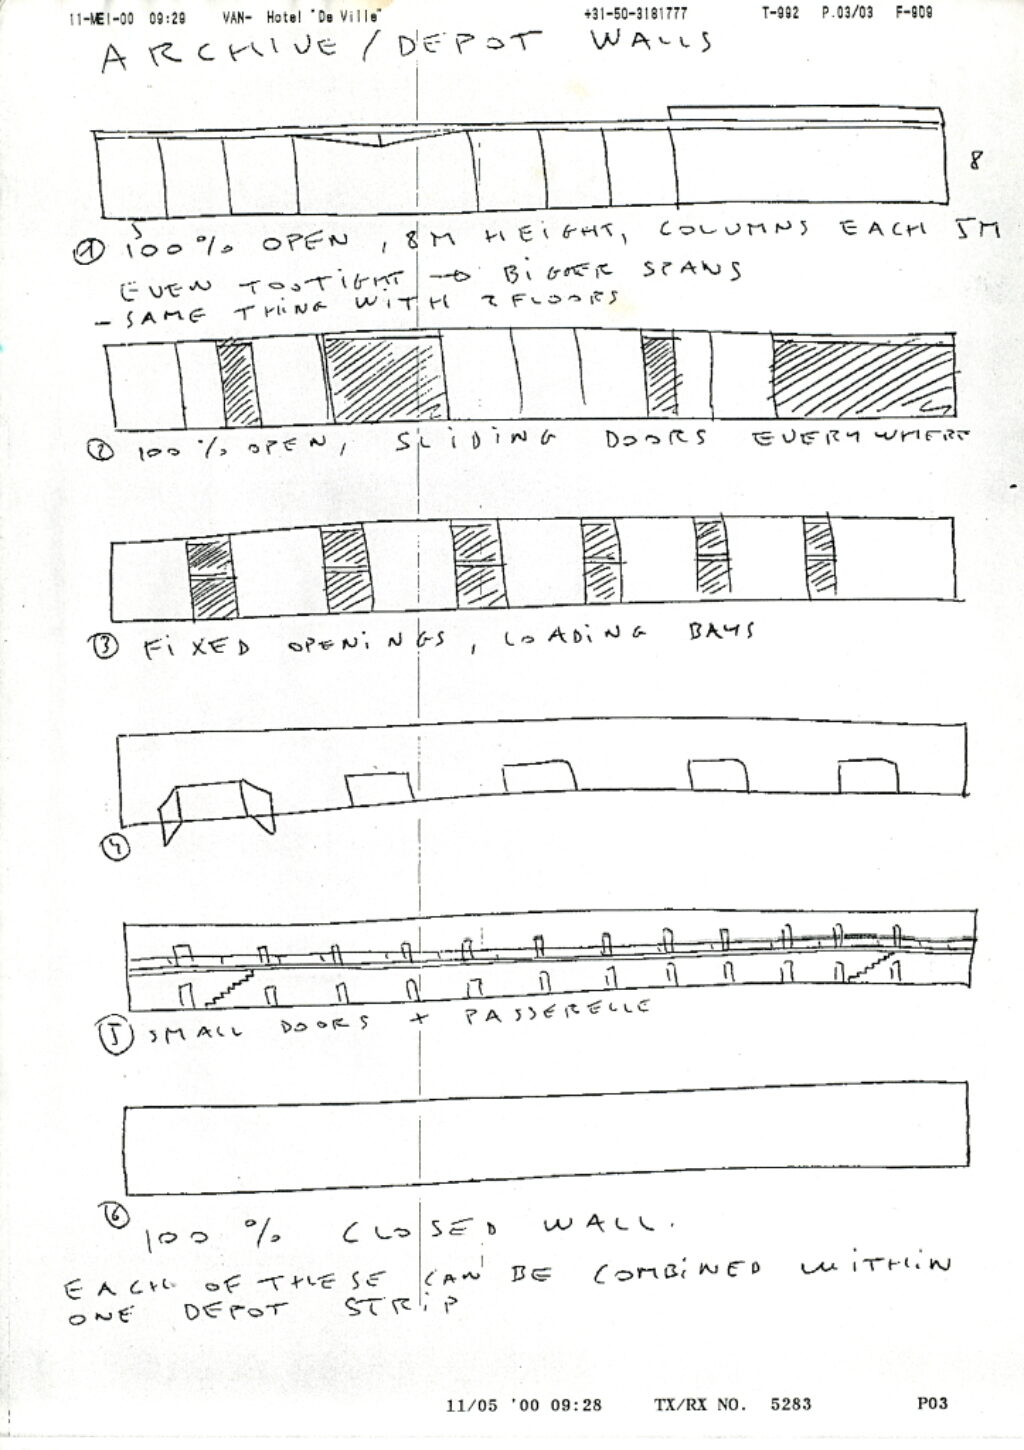 11-MEI-00 09:29 VAN- Hotel "De Ville" +31-50-3181777 T-992 P.03/03 F-909
ARCHIVE/DEPOT WALLS
8
5
① 100% OPEN, 8M HEIGHT, COLUMNS EACH 5M
EVEN TOO TIGHT → BIGGER SPANS
- SAME THING WITH 2 FLOORS
② 100% OPEN, SLIDING DOORS EVERYWHERE
③ FIXED OPENINGS, LOADING BAYS
④
⑤ SMALL DOORS + PASSERELLE
⑥ 100% CLOSED WALL.
EACH OF THESE CAN BE COMBINED WITHIN
ONE DEPOT STRIP
11/05 '00 09:28 TX/RX NO. 5283 P03